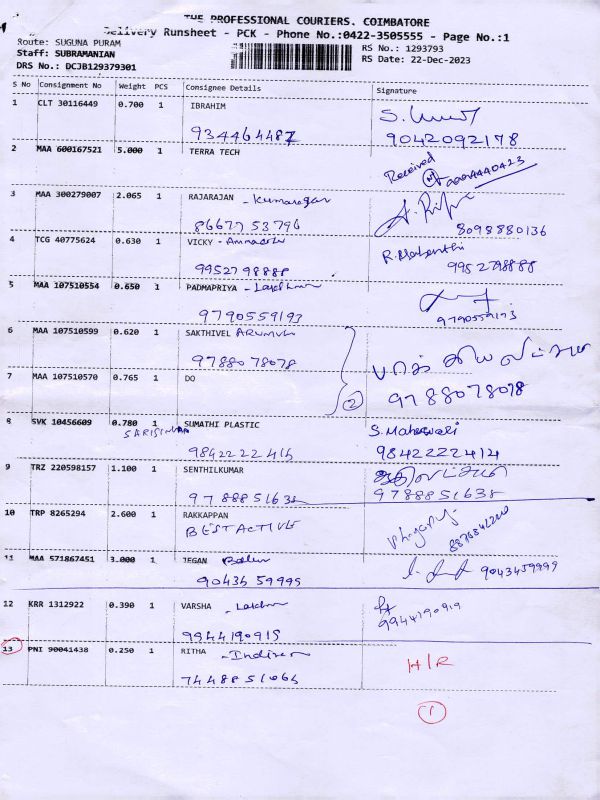 THE PROFESSIONAL COURIERS. COIMBATORE
Delivery Runsheet - PCK - Phone No.:0422-3505555 - Page No.:1
Route: SUGUNA PURAM
Staff: SUBRAMANIAN
DRS No.: DCJB129379301
RS No.: 1293793
RS Date: 22-Dec-2023
S No Consignment No Weight PCS Consignee Details Signature
1 CLT 30116449 0.700 1 IBRAHIM
934464487 9042092178
2 MAA 600167521 5.000 1 TERRA TECH
Received
3 MAA 300279007 2.065 1 RAJARAJAN - Kumaragan
8667753796 8098880136
4 TCG 40775624 0.630 1 VICKY
9952798888 9952798888
5 MAA 107510554 0.650 1 PADMAPRIYA
9790559193 9790559173
6 MAA 107510599 0.620 1 SAKTHIVEL
9788078078
7 MAA 107510570 0.765 1 DO
2 9788078078
8 SVK 10456609 0.780 1 SUMATHI PLASTIC S. Maheswari
9842222414 9842222414
9 TRZ 220598157 1.100 1 SENTHILKUMAR
9788851638 9788851638
10 TRP 8265294 2.600 1 RAKKAPPAN
BEST ACTIVE
11 MAA 571867451 3.000 1 JEGAN
9043459999 9043459999
12 KRR 1312922 0.390 1 VARSHA
9944190919 9944190919
13 PNI 90041438 0.250 1 RITHA H/R
7448851066
1